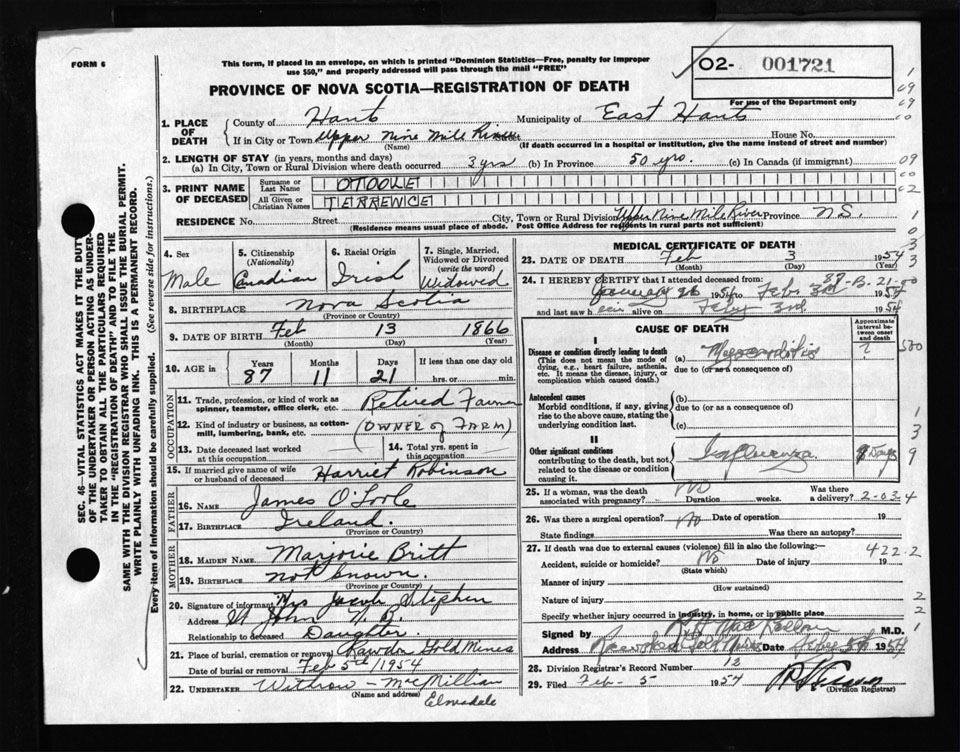 FORM 6
This form, if placed in an envelope, on which is printed "Dominion Statistics—Free, penalty for improper
use $50," and properly addressed will pass through the mail "FREE"
O2- 001721
For use of the Department only
PROVINCE OF NOVA SCOTIA—REGISTRATION OF DEATH
1. PLACE OF DEATH
County of Hants Municipality of East Hants
If in City or Town Upper Nine Mile River House No.
(Name) (If death occurred in a hospital or institution, give the name instead of street and number)
2. LENGTH OF STAY (in years, months and days)
(a) In City, Town or Rural Division where death occurred 3 yrs (b) In Province 50 yrs. (c) In Canada (if immigrant)
3. PRINT NAME OF DECEASED
Surname or Last Name OTOOLE
All Given or Christian Names TERRENCE
RESIDENCE No. Street City, Town or Rural Division Upper Nine Mile River Province N.S.
(Residence means usual place of abode. Post Office Address for residents in rural parts not sufficient)
4. Sex Male
5. Citizenship (Nationality) Canadian
6. Racial Origin Irish
7. Single, Married, Widowed or Divorced (write the word) Widowed
8. BIRTHPLACE Nova Scotia
(Province or Country)
9. DATE OF BIRTH Feb 13 1866
(Month) (Day) (Year)
10. AGE in Years 87 Months 11 Days 21 If less than one day old
hrs. or min.
OCCUPATION
11. Trade, profession, or kind of work as spinner, teamster, office clerk, etc. Retired Farmer
12. Kind of industry or business, as cotton-mill, lumbering, bank, etc. (OWNER OF FARM)
13. Date deceased last worked at this occupation
14. Total yrs. spent in this occupation
15. If married give name of wife or husband of deceased Harriet Robinson
FATHER
16. NAME James O'Toole
17. BIRTHPLACE Ireland.
(Province or Country)
MOTHER
18. MAIDEN NAME Marjorie Britt
19. BIRTHPLACE not known.
(Province or Country)
20. Signature of informant Mrs Jacob Stephen
Address St John N.B.
Relationship to deceased Daughter.
21. Place of burial, cremation or removal Rawdon Gold Mines
Date of burial or removal Feb 5th/1954
22. UNDERTAKER Withrow - MacMillian
(Name and address) Elmsdale
MEDICAL CERTIFICATE OF DEATH
23. DATE OF DEATH Feb 3 1954
(Month) (Day) (Year)
24. I HEREBY CERTIFY that I attended deceased from:
January 1954 to Feb 3rd 1954
and last saw h alive on Feby 3rd. 1954
CAUSE OF DEATH
Approximate interval between onset and death
I
Disease or condition directly leading to death
(This does not mean the mode of dying, e.g., heart failure, asthenia, etc. It means the disease, injury, or complication which caused death.)
(a) Myocarditis
due to (or as a consequence of)
Antecedent causes
Morbid conditions, if any, giving rise to the above cause, stating the underlying condition last.
(b)
due to (or as a consequence of)
(c)
II
Other significant conditions
contributing to the death, but not related to the disease or condition causing it.
Influenza 8 Days
25. If a woman, was the death associated with pregnancy? No Duration weeks. Was there a delivery? 2-034
26. Was there a surgical operation? No Date of operation 19
State findings Was there an autopsy?
27. If death was due to external causes (violence) fill in also the following:— 422.2
Accident, suicide or homicide? No Date of injury 19
(State which)
Manner of injury
(How sustained)
Nature of injury
Specify whether injury occurred in industry, in home, or in public place
Signed by M.D.
Address Rawdon Gold Mines Date Feby 5th 1954
28. Division Registrar's Record Number 12
29. Filed Feb - 5 1954
(Division Registrar)
SEC. 46—VITAL STATISTICS ACT MAKES IT THE DUTY
OF THE UNDERTAKER OR PERSON ACTING AS UNDER-
TAKER TO OBTAIN ALL THE PARTICULARS REQUIRED
IN THE "REGISTRATION OF DEATH" AND TO FILE THE
SAME WITH THE DIVISION REGISTRAR WHO SHALL ISSUE THE BURIAL PERMIT.
WRITE PLAINLY WITH UNFADING INK. THIS IS A PERMANENT RECORD.
Every item of information should be carefully supplied. (See reverse side for instructions.)